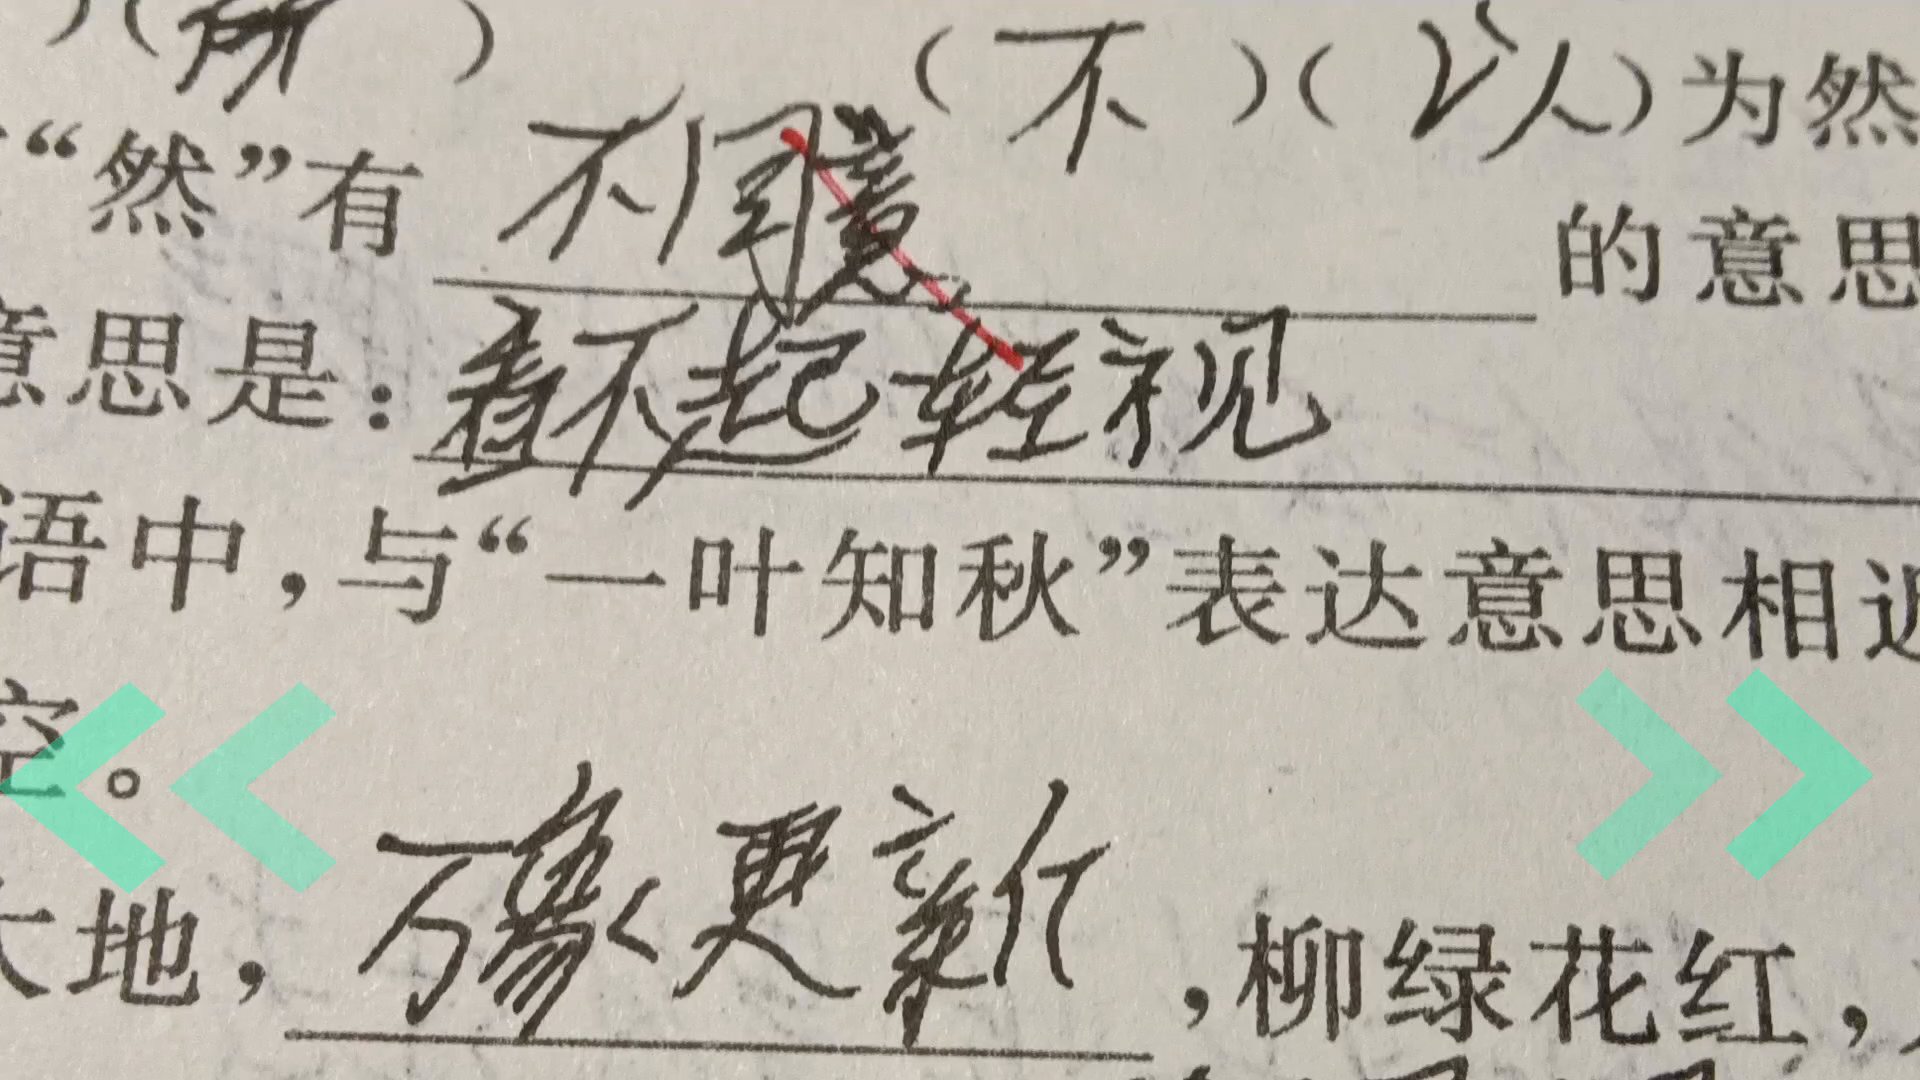 )(所) (不)(以)为然
“然”有 不同意 的意思
意思是：看不起 轻视
语中，与“一叶知秋”表达意思相近
空。
大地，万象更新，柳绿花红，